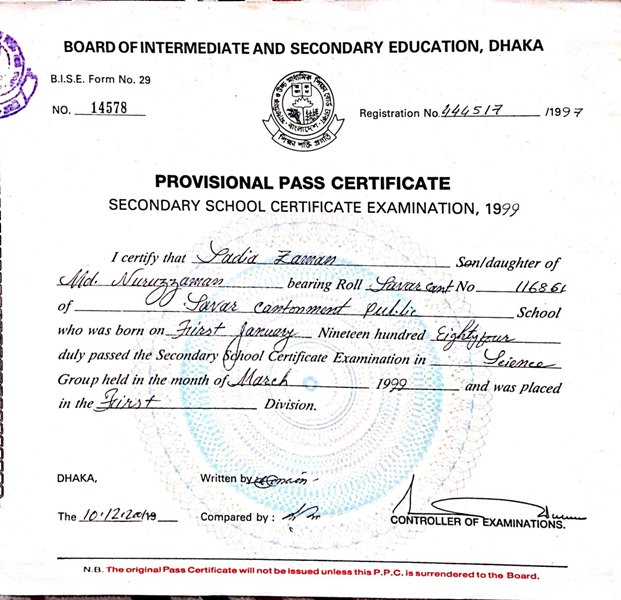 BOARD OF INTERMEDIATE AND SECONDARY EDUCATION, DHAKA
B.I.S.E. Form No. 29
NO. 14578
Registration No. 444517 /1997
PROVISIONAL PASS CERTIFICATE
SECONDARY SCHOOL CERTIFICATE EXAMINATION, 1999
I certify that Sadia Zaman Son/daughter of
Md. Nuruzzaman bearing Roll Savar cant No 116861
of Savar Cantonment Public School
who was born on First January Nineteen hundred Eighty four
duly passed the Secondary School Certificate Examination in Science
Group held in the month of March 1999 and was placed
in the First Division.
DHAKA,
Written by
The 10.12.2019 Compared by :
CONTROLLER OF EXAMINATIONS.
N.B. The original Pass Certificate will not be issued unless this P.P.C. is surrendered to the Board.